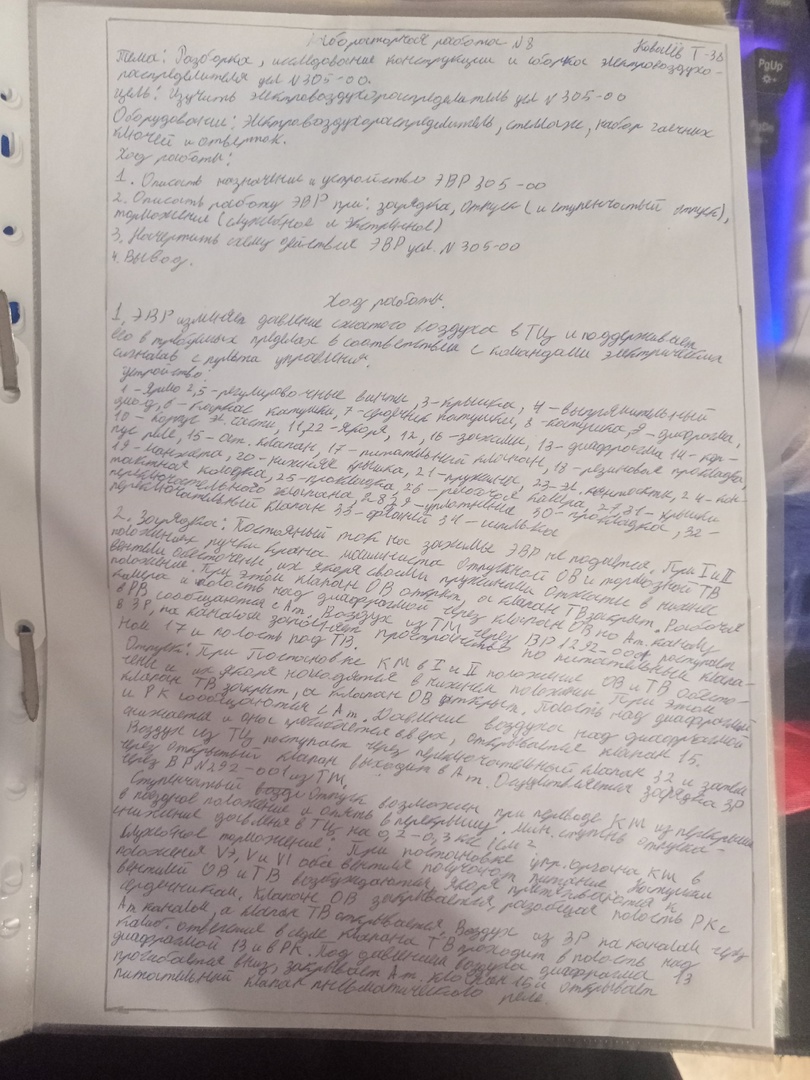 Лабораторная работа №8 Ковалёв Т-38
Тема: Разборка, исследование конструкции и сборка электровоздухо-
распределителя усл №305-00.
Цель: Изучить электровоздухораспределитель усл №305-00
Оборудование: Электровоздухораспределитель, стеллаж, набор гаечных
ключей и отверток.
Ход работы:
1. Описать назначение и устройство ЭВР 305-00
2. Описать работу ЭВР при: зарядка, отпуск (и ступенчатый отпуск),
торможение (служебное и экстренное)
3. Начертить схему действия ЭВР усл. №305-00
4. Вывод.
Ход работы.
1. ЭВР изменяет давление сжатого воздуха в ТЦ и поддерживает
его в требуемых пределах в соответствии с командами электрических
сигналов с пульта управления.
Устройство:
1 - Ярмо 2,5 - регулировочные винты, 3 - крышка, 4 - выпрямительный
диод, 6 - каркас катушки, 7 - сердечник катушки, 8 - катушка, 9 - диафрагма,
10 - корпус эл. части, 11,22 - якоря, 12, 16 - зажимы, 13 - диафрагма 14 - кор-
пус реле, 15 - ат. клапан, 17 - питательный клапан, 18 - резиновая прокладка,
19 - манжета, 20 - нижняя крышка, 21 - пружины, 23 - эл. 24 - кон-
тактная колодка, 25 - прокладка 26 - рабочая камера, 27,31 - крышки
переключательного клапана, 28,29 - уплотнения 30 - прокладка, 32 -
переключательный клапан 33 - фланец 34 - шпилька
2. Зарядка: Постоянный ток на зажимы ЭВР не подается. При I и II
положениях ручки крана машиниста отпускной ОВ и тормозной ТВ
вентили обесточены, их якоря своими пружинами отжаты в нижние
положение. При этом клапан ОВ открыт, а клапан ТВ закрыт. Рабочая
камера и полость над диафрагмой через клапан ОВ по Ат. каналу
в РВ сообщаются с Ат. Воздух из ТМ через ВР 292-001 поступает
в ЗР, по каналам заполняет пространство по питательным клапа-
ном 17 и полость под ТВ.
Отпуск: При Постановке КМ в I и II положение ОВ и ТВ обесто-
чены и их якоря находятся в нижнем положении. При этом
клапан ТВ закрыт, а клапан ОВ открыт. Полость над диафрагмой
и РК сообщаются с Ат. Давление воздуха над диафрагмой
снижается и она прогибается вверх, открывается клапан 15.
Воздух из ТЦ поступает через переключательный клапан 32 и затем
через открытый клапан выходит в Ат. Осуществляется зарядка ЗР
через ВР №292-001 из ТМ.
Ступенчатый отпуск возможен при переводе КМ из перекрыши
в поездное положение и опять в перекрышу. Мин. ступень отпуска -
снижение давления в ТЦ на 0,2-0,3 кгс/см²
Служебное торможение: При постановке упр. органа КМ в
положения VЭ, V и VI оба вентиля получают питание. Катушки
вентилей ОВ и ТВ возбуждаются, якоря притягиваются к
сердечникам. Клапан ОВ закрывается, разобщая полость РК с
Ат каналом, а клапан ТВ открывается. Воздух из ЗР по каналам через
калиб. отверстие в седле клапана ТВ проходит в полость над
диафрагмой 13 и в РК. Под давлением воздуха диафрагма 13
прогибается вниз, закрывает Ат. клапан 15 и открывает
питательный клапан пневматического реле.